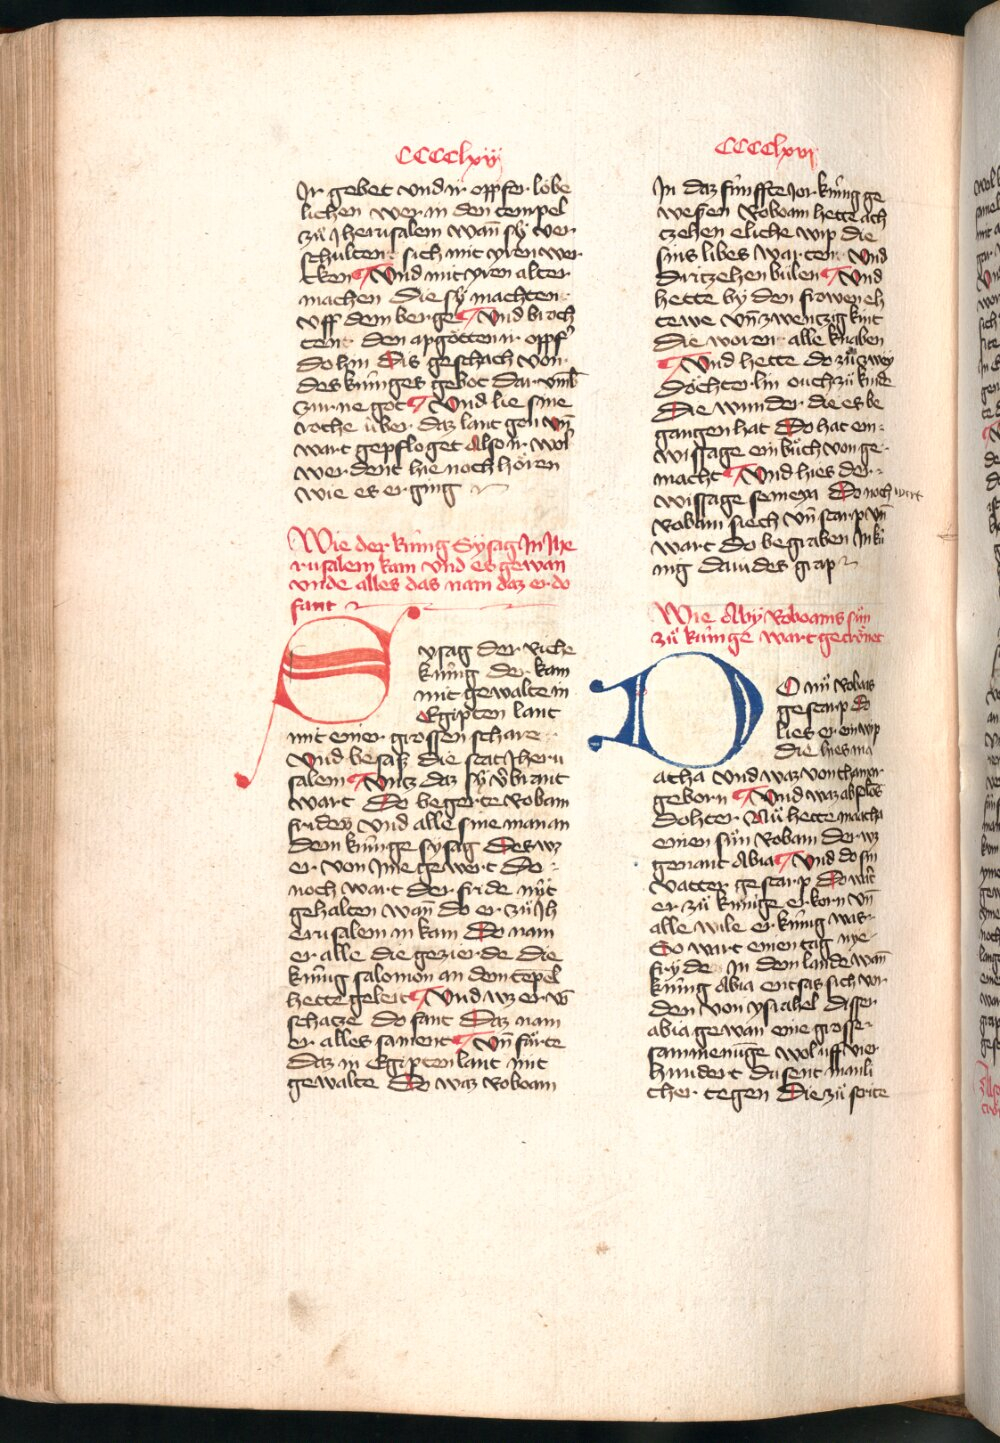 CCCClxv
Jr gebet vnd ir oppfer lobe
lichen wer in den tempel
zů Jherusalem wañ sÿ ver
schulten sich mit yren wer
cken Vnd mit yren alter
machen Die sÿ machten
vff dem berge Vnd broch
tent den apgöttern ir oppf̉
do hin Dis geschach von
des küniges gebot dar vmb
zurne got Vnd lie sine
roche über daz lant gon vñ
wart gepfloget Also ir wol
werdent hie noch hören
wie es erging
Wie der künig Sysag Jn Jhe
rusalem kam vnd es gewan
vnde alles das nam daz er do
fant
Sysag der riche
künig der kam
mit gewalte in
Egipten lant
mit einer grossen schare
Vnd besasz die stat Jheru
salem Vntz daz sÿ v̉brant
wart Do begerte Robam
friden vnd alle sine man an
dem künige sysag Des wz
er von ime gewert Do
noch wart der fride nüt
gehalten wañ do er zů Jh
erusalem in kam Do nam
er alle die gezierde die
künig salomon an den tēpel
hette geleit Vnd wz er vō
schatze do fant Daz nam
er alles sament Vñ fůrte
daz in Egipten lant mit
gewalte Do waz Roboam
CCCClxvi
Jn daz fünffte Jor künig ge
wesen Roboam hette ach
tzehen eliche wip die
sins libes warten Vnd
dritzehen bülen Vnd
hette by den frowen eh
tewe vñ zwentzig kint
die woren alle knaben
Vnd hette do zů zwey
döchterlin ouch zů kinde
Die wunder die es be
gangen hat Do hat ein
wissage ein bůch von ge
macht Vnd hies der
wissage semeya Do noch wart
Robam siech vñ starp vñ
wart do begraben Jn kü
nig dauides grap
Wie Aby Roboams sůn
zů künge wart gecrönet
DO nů Robam
gestarp Do
lies er ein wip
die hies ma
acha vnd waz von thamar
geborn Vnd waz absolōs
dohter Nů hette maacha
einen sůn Robam der wz
genant Abia Vnd do sin
vatter gestarp Do wart
er zů künige erkorn vñ
alle wile er künig was
So wart einen tag nye
fryde Jn dem lande wañ
künig Abia entsas sich vor
den von ysrahel Disser
abia gewan eine grosse
sammenüge wol uff vier
hundert dusent manli
cher tegen Die zů strite